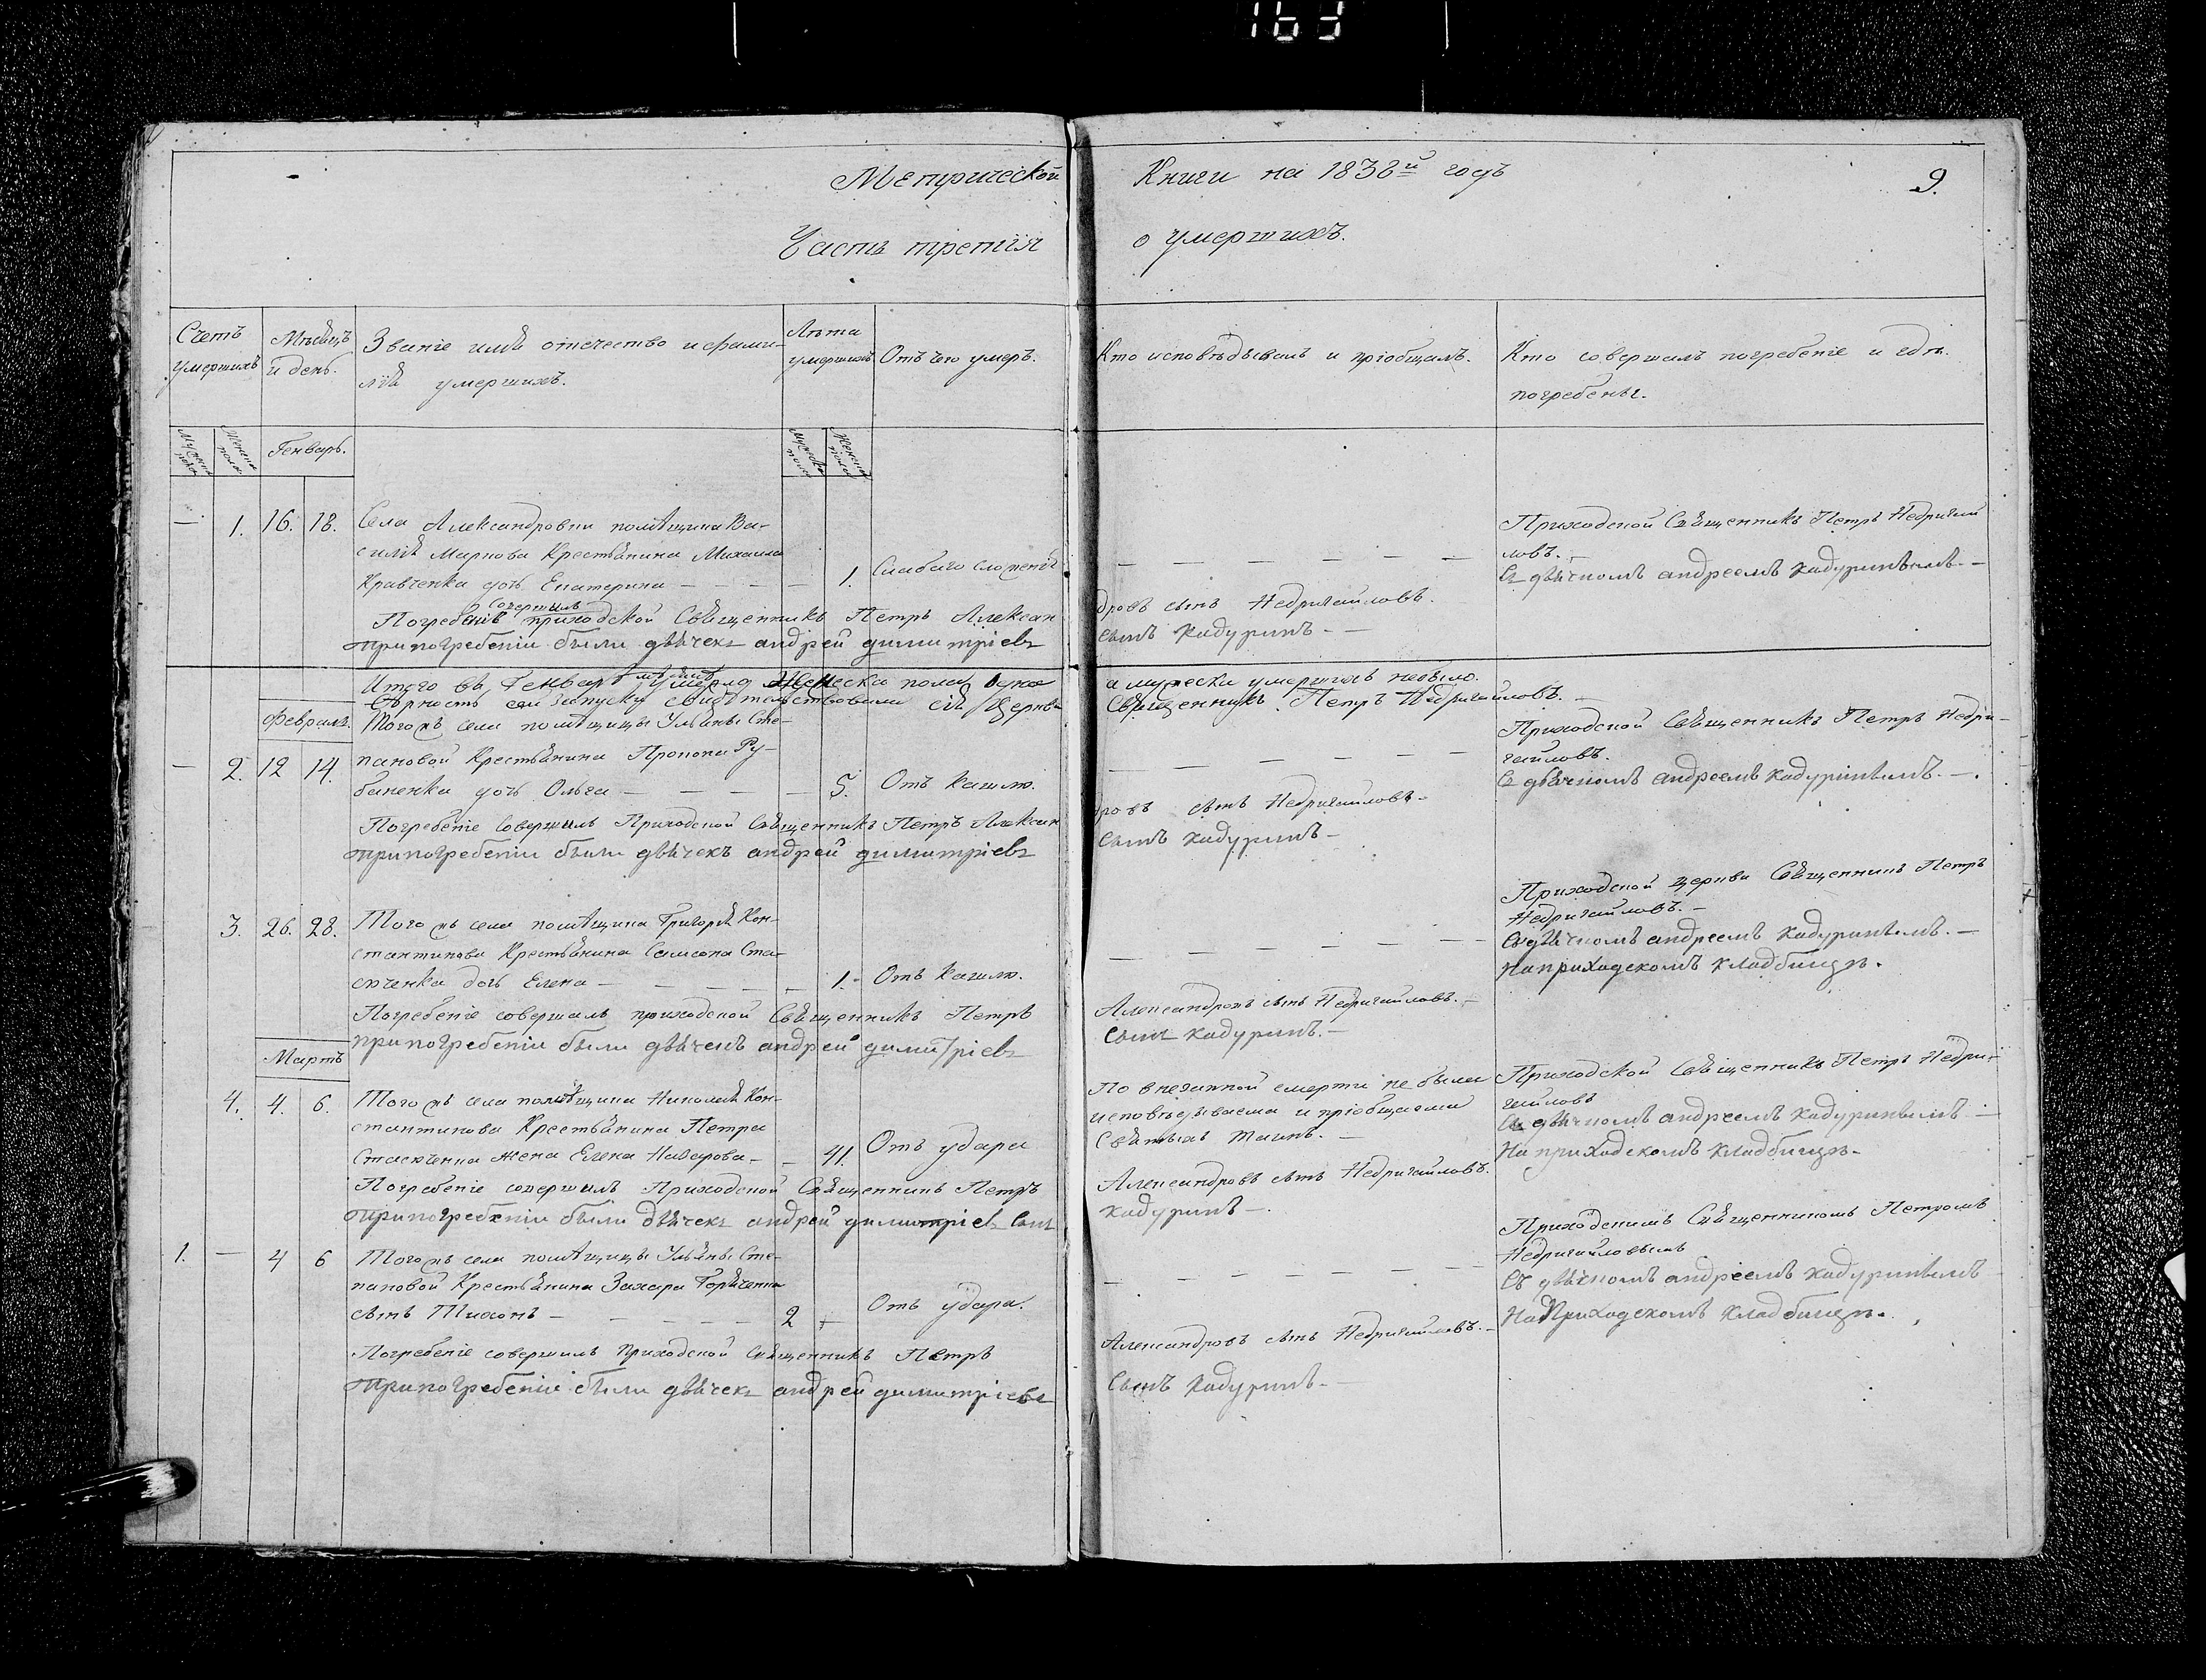 163
Метрической Книги на 1838й годъ
9.
Часть третiя о умершихъ.
Счетъ умершихъ
Мѣсяцъ и день.
Званiе имя отечество и фами-
лiя умершихъ.
Лѣта умершихъ
Отъ чего умеръ.
Кто исповѣдывалъ и прiобщалъ.
Кто совершалъ погребенiе и гдѣ
погребены.
Мужеска пола
Женска пола
Генварь.
Мужеска пола
Женска пола
— 1. 16. 18. Села Александровки помѣщика Ва-
силiя Маркова Крестьянина Михаила
Кравченка дочь Екатерина — — — — 1. Слабаго сложенiя
— — — — —
Приходской Священникъ Петръ Недригай
ловъ. —
Съ дьячкомъ андреемъ кадуринымъ. —
Погребенiе совершилъ приходской Священникъ Петръ Алексан
дровъ сынъ Недригайловъ.
При погребенiи были дьячекъ андрей димитрiевъ
сынъ кадуринъ. —
Итого въ Генварѣ мѣсяцѣ умерло женска пола одна
а мужеска умершихъ небыло.
Вѣрность сей запуску свидѣтельствовали сея Церкви
Священникъ Петръ Недригайловъ. —
Февраль.
— 2. 12 14. Тогожъ села помѣщицы Ульяны Сте-
пановой Крестьянина Прокопа Ру-
баненка дочь Ольга — — — — — 5. Отъ кашлю.
— — — — — —
Приходской Священникъ Петръ Недри-
гайловъ.
Съ дьячкомъ андреемъ кадуринымъ. —.
Погребенiе совершилъ Приходской Священникъ Петръ Алексан
дровъ сынъ Недригайловъ. —
При погребенiи были дьячекъ андрей димитрiевъ
сынъ кадуринъ —
3. 26. 28. Тогожъ села помѣщика Григорiя Кон-
стантинова Крестьянина Самсона Ста-
сюченка дочь Елена — — — — — — 1. - Отъ кашлю.
— — — — — —
Приходской церкви Священникъ Петръ
Недригайловъ. —
Съ дьячкомъ андреемъ кадуринымъ. —
На приходскомъ кладбищѣ.
Погребенiе совершилъ приходской Священникъ Петръ
Александровъ сынъ Недригайловъ. —
При погребенiи были дьячекъ андрей димитрiевъ
сынъ кадуринъ. —
Мартъ
4. 4. 6. Тогожъ села помѣщика Николая Кон-
стантинова Крестьянина Петра
Стасюченка жена Елена Назарова — — 41. Отъ удара
По внезапной смерти не была
исповѣдываема и прiобщаема
Святыхъ таинъ. —
Приходской Священникъ Петръ Недри-
гайловъ
Съ дьячкомъ андреемъ кадуринымъ —
На приходскомъ кладбищѣ. —
Погребенiе совершилъ Приходской Священникъ Петръ
Александровъ сынъ Недригайловъ.
При погребенiи были дьячекъ андрей димитрiевъ сынъ
кадуринъ —.
1. — 4 6 Тогожъ села помѣщицы Ульяны Сте-
пановой Крестьянина Захара Горяченка
сынъ Тихонъ — — — — — — 2 + Отъ удара.
— — — — — — —
Приходскимъ Священникомъ Петромъ
Недригайловымъ
Съ дьячкомъ андреемъ кадуринымъ
На Приходскомъ кладбищѣ.
Погребенiе совершилъ Приходской Священникъ Петръ
Александровъ сынъ Недригайловъ. —
При погребенiи были дьячекъ андрей димитрiевъ
сынъ кадуринъ. —